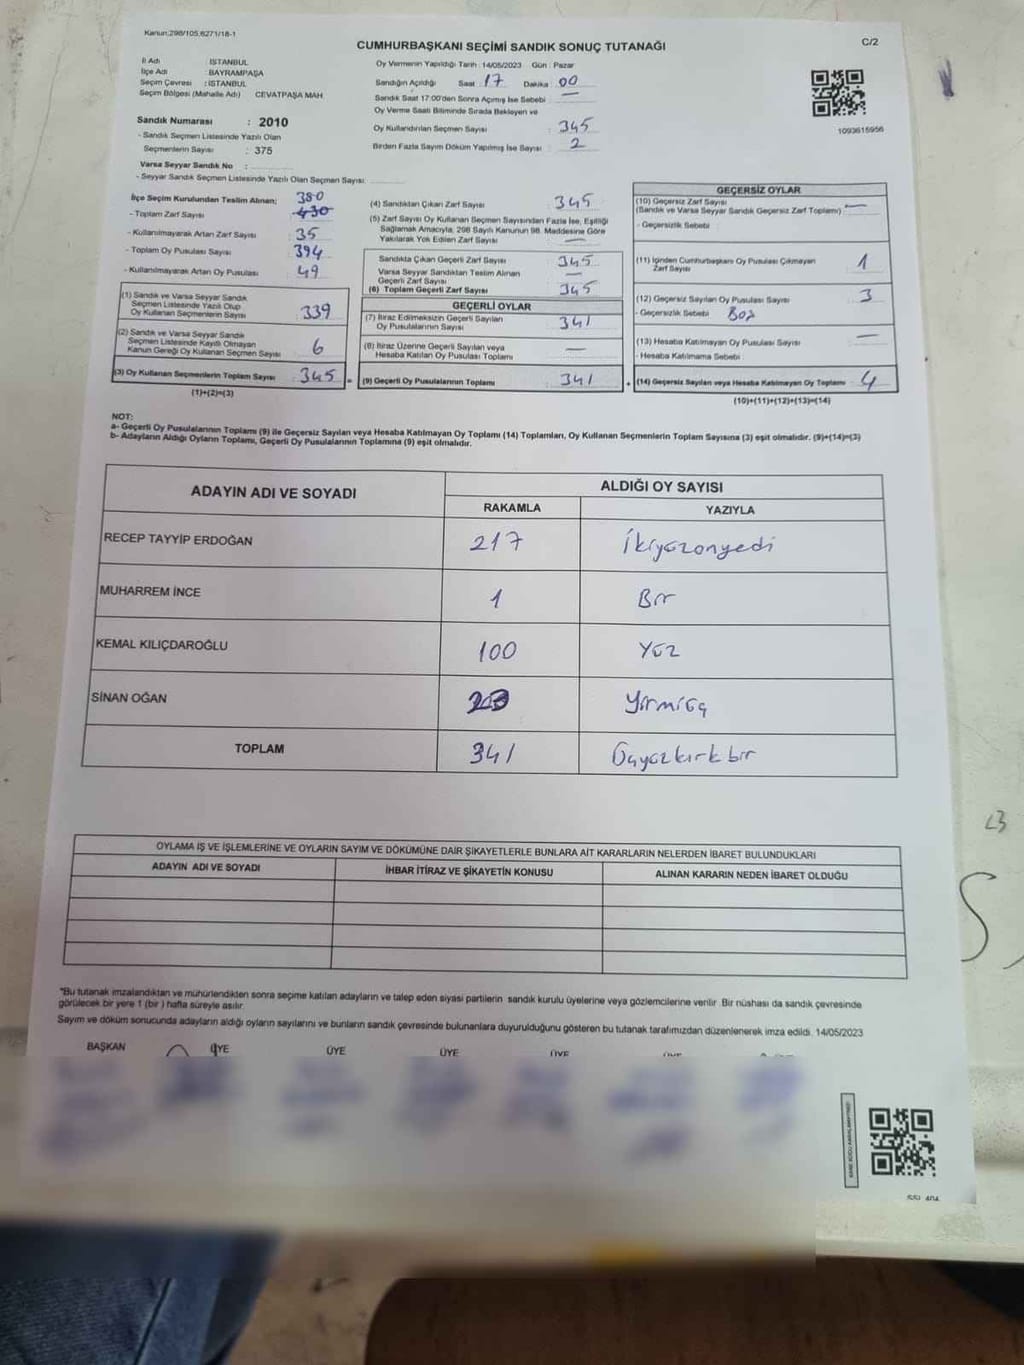 Kanun:298/105,6271/18-1
C/2
CUMHURBAŞKANI SEÇİMİ SANDIK SONUÇ TUTANAĞI
İl Adı : İSTANBUL
İlçe Adı : BAYRAMPAŞA
Seçim Çevresi : İSTANBUL
Seçim Bölgesi (Mahalle Adı) CEVATPAŞA MAH.
Sandık Numarası : 2010
- Sandık Seçmen Listesinde Yazılı Olan
Seçmenlerin Sayısı : 375
Varsa Seyyar Sandık No :
- Seyyar Sandık Seçmen Listesinde Yazılı Olan Seçmen Sayısı
Oy Vermenin Yapıldığı Tarih : 14/05/2023 Gün : Pazar
Sandığın Açıldığı Saat : 17 Dakika : 00
Sandık Saat 17:00'den Sonra Açımış İse Sebebi : —
Oy Verme Saati Bitiminde Sırada Bekleyen ve
Oy Kullandırılan Seçmen Sayısı : 345
Birden Fazla Sayım Döküm Yapılmış İse Sayısı : 2
1093615956
İlçe Seçim Kurulundan Teslim Alınan; 380
- Toplam Zarf Sayısı : 430
- Kullanılmayarak Artan Zarf Sayısı : 35
- Toplam Oy Pusulası Sayısı : 394
- Kullanılmayarak Artan Oy Pusulası : 49
(1) Sandık ve Varsa Seyyar Sandık
Seçmen Listesinde Yazılı Olup
Oy Kullanan Seçmenlerin Sayısı : 339
(2) Sandık ve Varsa Seyyar Sandık
Seçmen Listesinde Kayıtlı Olmayan
Kanun Gereği Oy Kullanan Seçmen Sayısı : 6
(3) Oy Kullanan Seçmenlerin Toplam Sayısı : 345
(1)+(2)=(3)
(4) Sandıktan Çıkan Zarf Sayısı : 345
(5) Zarf Sayısı Oy Kullanan Seçmen Sayısından Fazla İse, Eşitliği
Sağlamak Amacıyla, 298 Sayılı Kanunun 98. Maddesine Göre
Yakılarak Yok Edilen Zarf Sayısı : —
Sandıkta Çıkan Geçerli Zarf Sayısı : 345
Varsa Seyyar Sandıktan Teslim Alınan
Geçerli Zarf Sayısı : —
(6) Toplam Geçerli Zarf Sayısı : 345
GEÇERLİ OYLAR
(7) İtiraz Edilmeksizin Geçerli Sayılan
Oy Pusulalarının Sayısı : 341
(8) İtiraz Üzerine Geçerli Sayılan veya
Hesaba Katılan Oy Pusulası Toplamı : —
= (9) Geçerli Oy Pusulalarının Toplamı : 341
GEÇERSİZ OYLAR
(10) Geçersiz Zarf Sayısı
(Sandık ve Varsa Seyyar Sandık Geçersiz Zarf Toplamı) : —
- Geçersizlik Sebebi :
(11) İçinden Cumhurbaşkanı Oy Pusulası Çıkmayan
Zarf Sayısı : 1
(12) Geçersiz Sayılan Oy Pusulası Sayısı : 3
- Geçersizlik Sebebi : Boş
(13) Hesaba Katılmayan Oy Pusulası Sayısı : —
- Hesaba Katılmama Sebebi :
+ (14) Geçersiz Sayılan veya Hesaba Katılmayan Oy Toplamı : 4
(10)+(11)+(12)+(13)=(14)
NOT:
a- Geçerli Oy Pusulalarının Toplamı (9) ile Geçersiz Sayılan veya Hesaba Katılmayan Oy Toplamı (14) Toplamları, Oy Kullanan Seçmenlerin Toplam Sayısına (3) eşit olmalıdır. (9)+(14)=(3)
b- Adayların Aldığı Oyların Toplamı, Geçerli Oy Pusulalarının Toplamına (9) eşit olmalıdır.
ADAYIN ADI VE SOYADI
ALDIĞI OY SAYISI
RAKAMLA YAZIYLA
RECEP TAYYİP ERDOĞAN 217 İkiyüzonyedi
MUHARREM İNCE 1 Bir
KEMAL KILIÇDAROĞLU 100 Yüz
SİNAN OĞAN 23 Yirmiüç
TOPLAM 341 Üçyüzkırkbir
OYLAMA İŞ VE İŞLEMLERİNE VE OYLARIN SAYIM VE DÖKÜMÜNE DAİR ŞİKAYETLERLE BUNLARA AİT KARARLARIN NELERDEN İBARET BULUNDUKLARI
ADAYIN ADI VE SOYADI İHBAR İTİRAZ VE ŞİKAYETİN KONUSU ALINAN KARARIN NEDEN İBARET OLDUĞU
*Bu tutanak imzalandıktan ve mühürlendikten sonra seçime katılan adayların ve talep eden siyasi partilerin sandık kurulu üyelerine veya gözlemcilerine verilir. Bir nüshası da sandık çevresinde
görülecek bir yere 1 (bir ) hafta süreyle asılır.
Sayım ve döküm sonucunda adayların aldığı oyların sayılarını ve bunların sandık çevresinde bulunanlara duyurulduğunu gösteren bu tutanak tarafımızdan düzenlenerek imza edildi. 14/05/2023
BAŞKAN ÜYE ÜYE ÜYE ÜYE